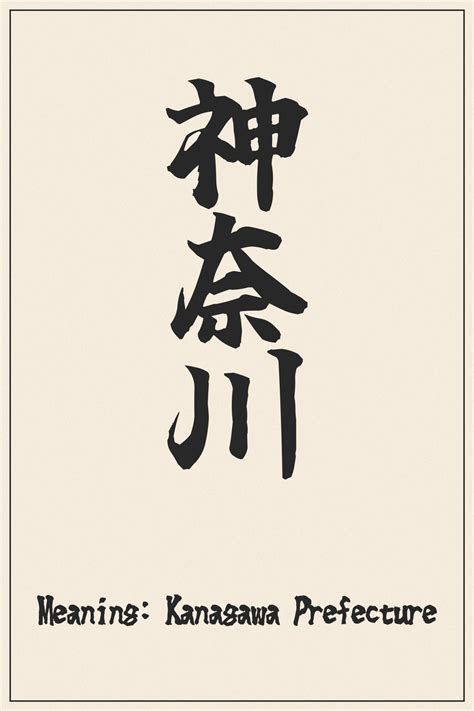 神奈川
Meaning: Kanagawa Prefecture